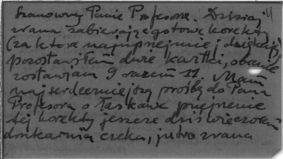 Szanowny Panie Profesorze. Dzisiaj
rano zabierając gotowe korekty
(za które najuprzejmiej dziękuję)
pozostawiłem dwie kartki,
zostawiam 9 razem 11. Mam
najserdeczniejszą prośbę do Pana
Profesora o łaskawe przejrzenie
tej korekty jeszcze dziś wieczorem
drukarnia czeka, jutro rano